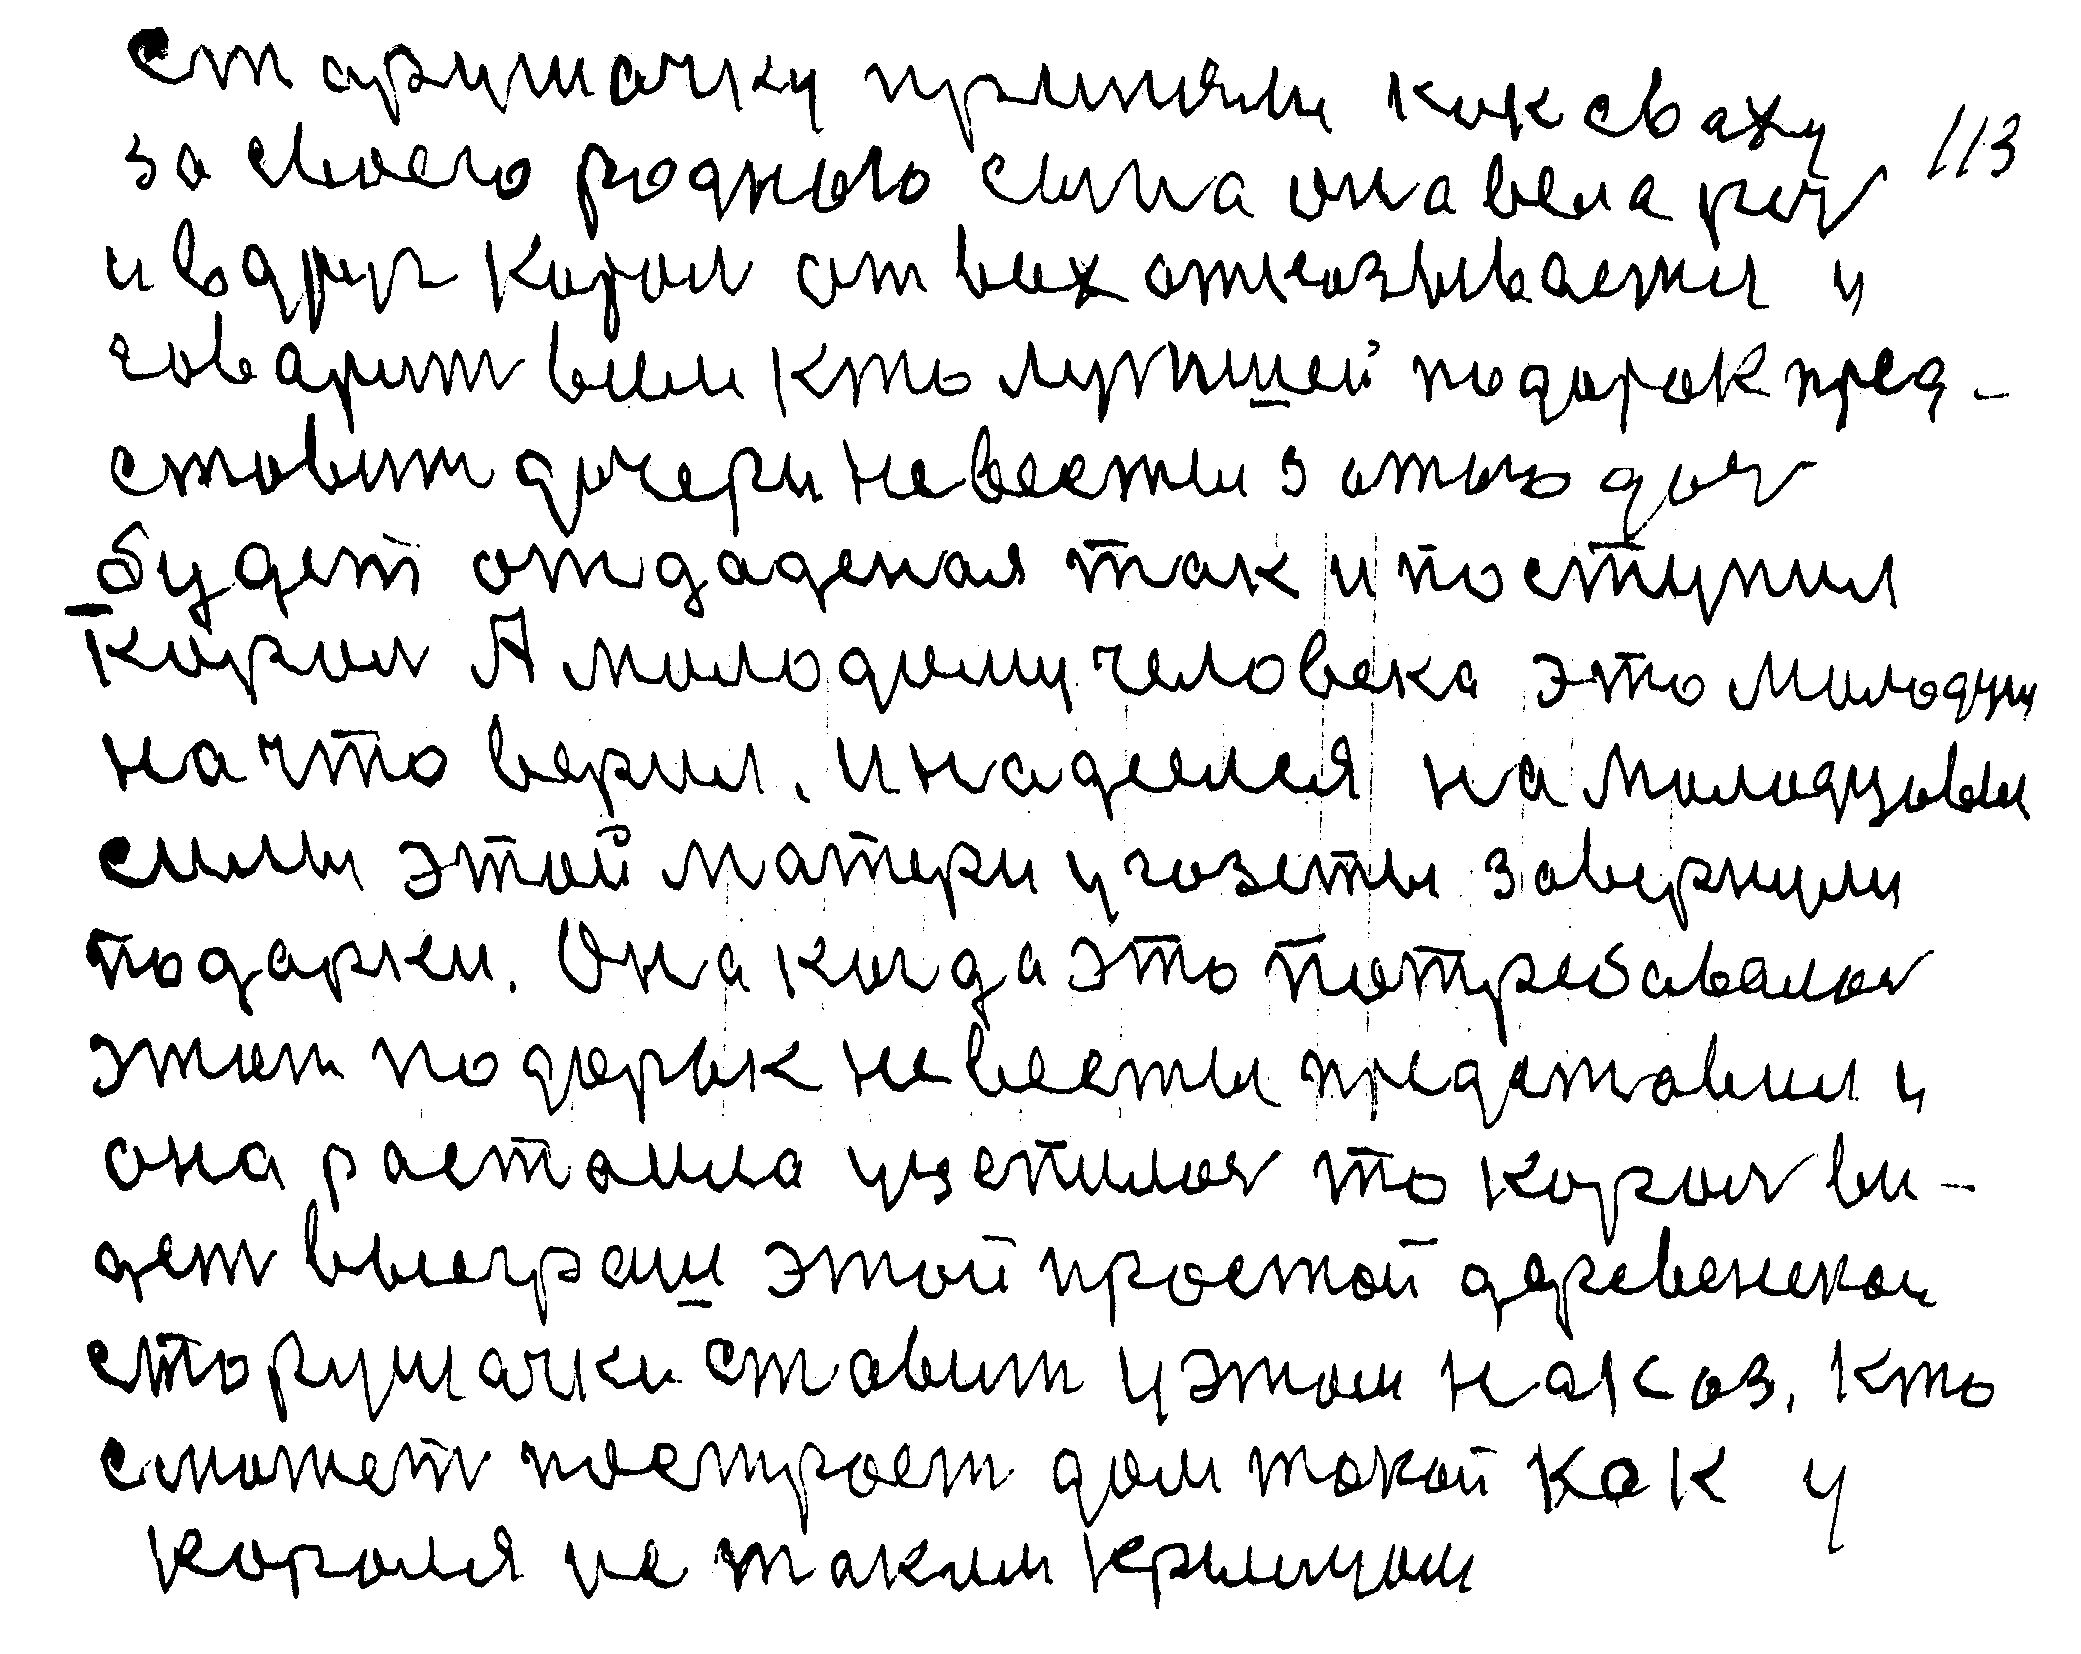 старушачку приняли как сваху 113
за своего родного сына она вела реч
и вдруг корол от всех отказывается и
говарит всем кто лутьшей подорок пред-
ставит дочери невести з отого доч
будет отдаденая так и поступил
корол А молодому человека это молодцу
на что верил. и наделся на молодцовы
силы этой матери у газеты завернули
подарки. Она когда это потребавалос
этот подарык невесты представил и
она растаила уцепилас то корол ви-
дет выеграш этой простой деревенской
сторушачки ставит у этом наказ. кто
сможет построет дом такой как у
короля и с таким крылцом